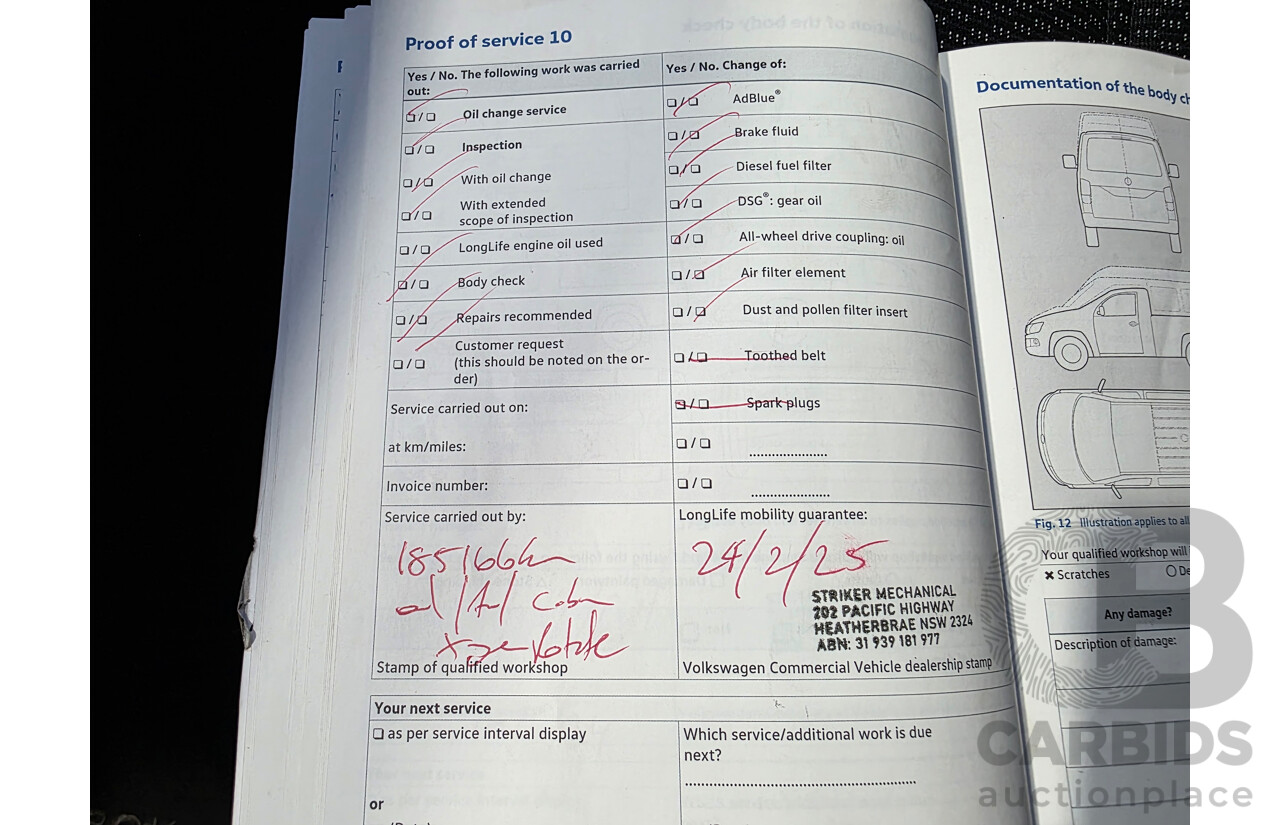 Proof of service 10
Yes / No. The following work was carried out:
❑ / ❑ Oil change service
❑ / ❑ Inspection
❑ / ❑ With oil change
❑ / ❑ With extended
scope of inspection
❑ / ❑ LongLife engine oil used
❑ / ❑ Body check
❑ / ❑ Repairs recommended
❑ / ❑ Customer request
(this should be noted on the or-
der)
Service carried out on:
at km/miles:
Invoice number:
Yes / No. Change of:
❑ / ❑ AdBlue®
❑ / ❑ Brake fluid
❑ / ❑ Diesel fuel filter
❑ / ❑ DSG®: gear oil
❑ / ❑ All-wheel drive coupling: oil
❑ / ❑ Air filter element
❑ / ❑ Dust and pollen filter insert
❑ / ❑ Toothed belt
❑ / ❑ Spark plugs
❑ / ❑ ......................
❑ / ❑ ......................
Service carried out by:
185166km
Stamp of qualified workshop
LongLife mobility guarantee:
24/2/25
STRIKER MECHANICAL
202 PACIFIC HIGHWAY
HEATHERBRAE NSW 2324
ABN: 31 939 181 977
Volkswagen Commercial Vehicle dealership stamp
Your next service
❑ as per service interval display
or
Which service/additional work is due
next?
Documentation of the body ch
Fig. 12 Illustration applies to all
Your qualified workshop will
✖ Scratches O De
Any damage?
Description of damage:
CB
CARBIDS
auctionplace